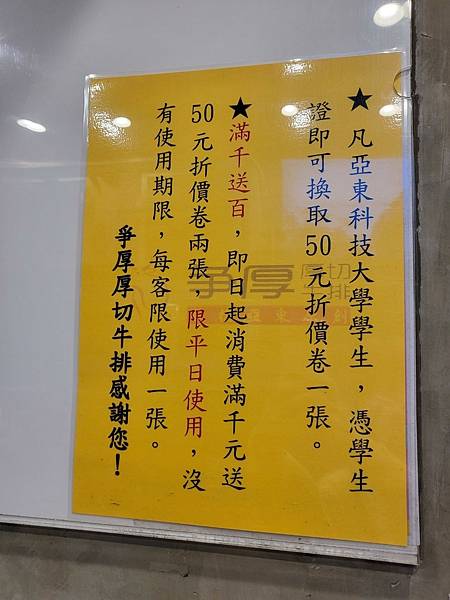 ★ 凡亞東科技大學學生，憑學生
證即可換取50元折價卷一張。
★滿千送百，即日起消費滿千元送
50元折價卷兩張，限平日使用，沒
有使用期限，每客限使用一張。
爭厚厚切牛排感謝您！
爭厚
厚切
牛排
亞東
創